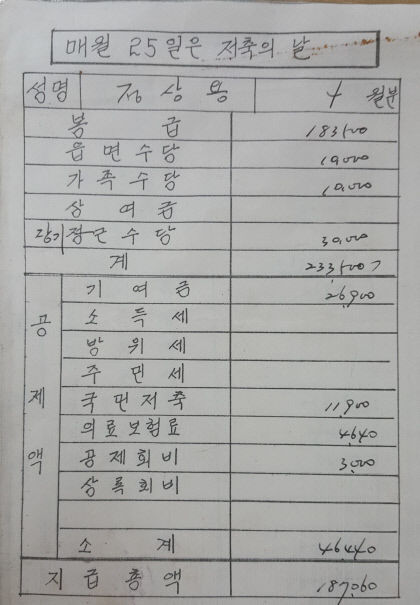 매월 25일은 저축의 날
성명 정상용 4 월분
봉급 183,500
읍면수당 10,000
가족수당 10,000
상여급
장기정근수당 30,000
계 233,500
공제액
기여금 26,900
소득세
방위세
주민세
국민저축 11,900
의료보험료 4,640
공제회비 3,000
상록회비
소계 46,440
지급총액 187,060